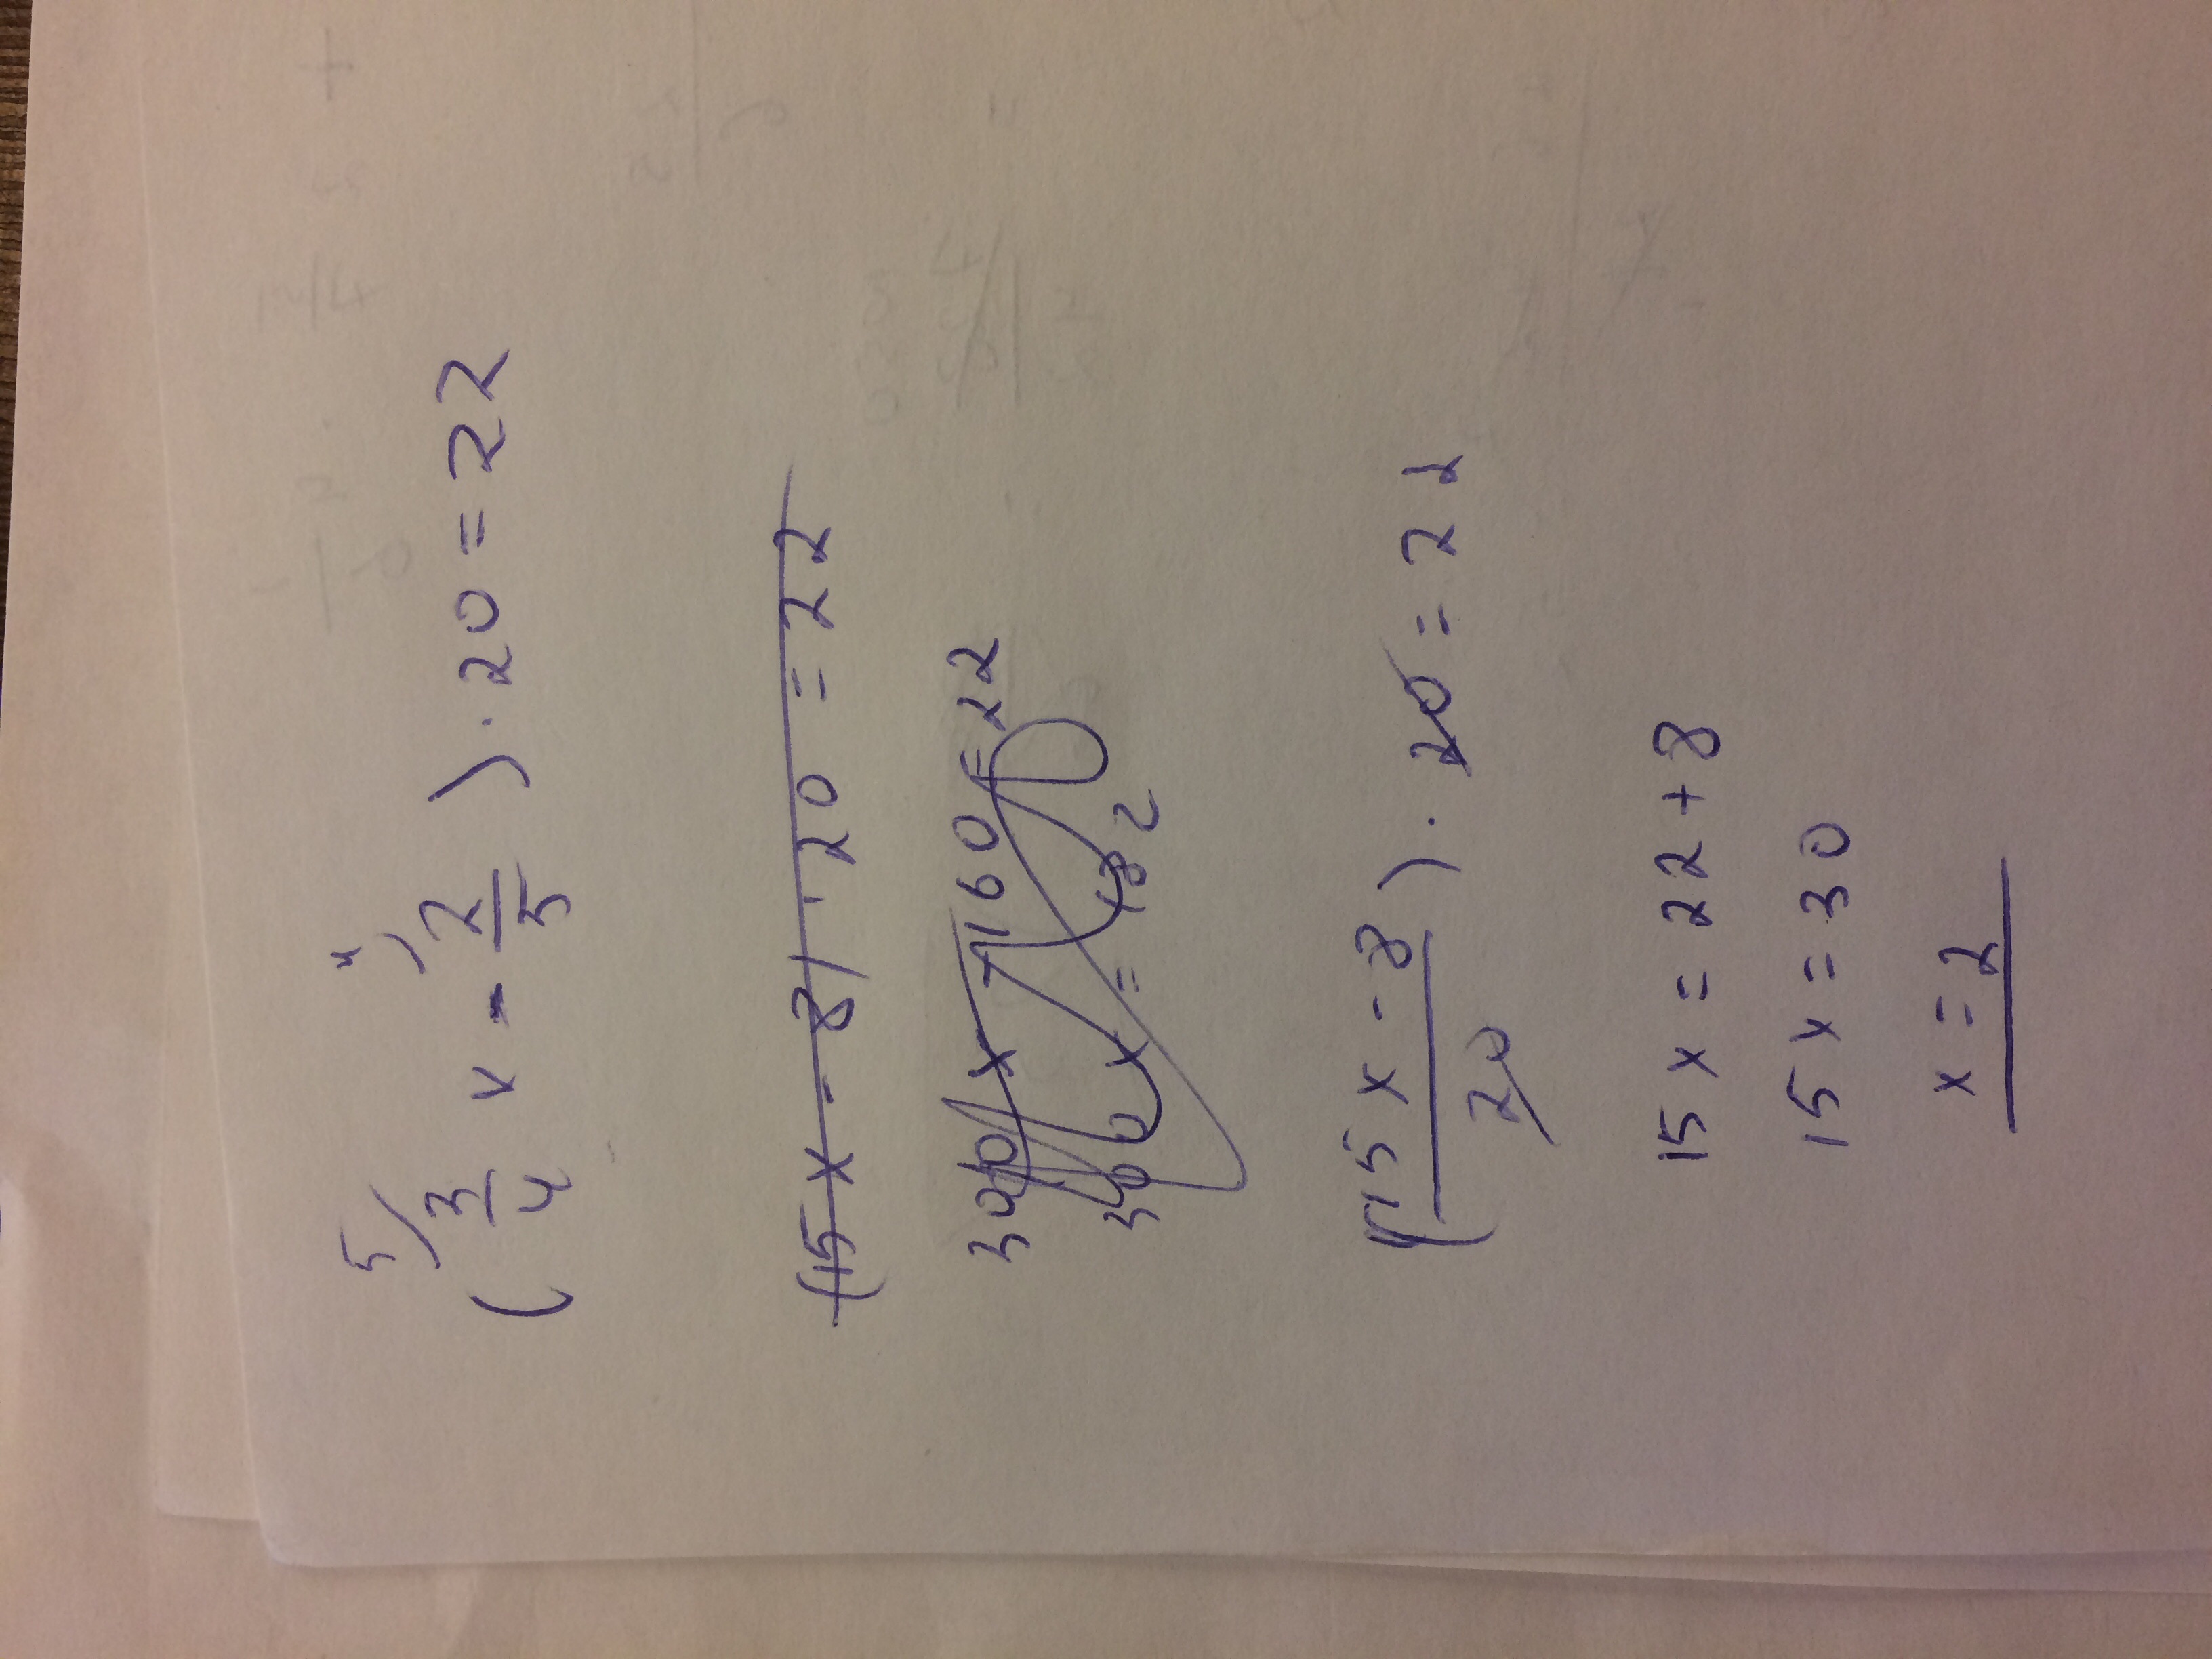 5) 4)
(3/4 x - 2/5) . 20 = 22
(15x - 8) . 20 = 22
300x - 160 = 22
300x = 182
(15x - 8)/20 ) . 20 = 22
15x = 22 + 8
15x = 30
x = 2